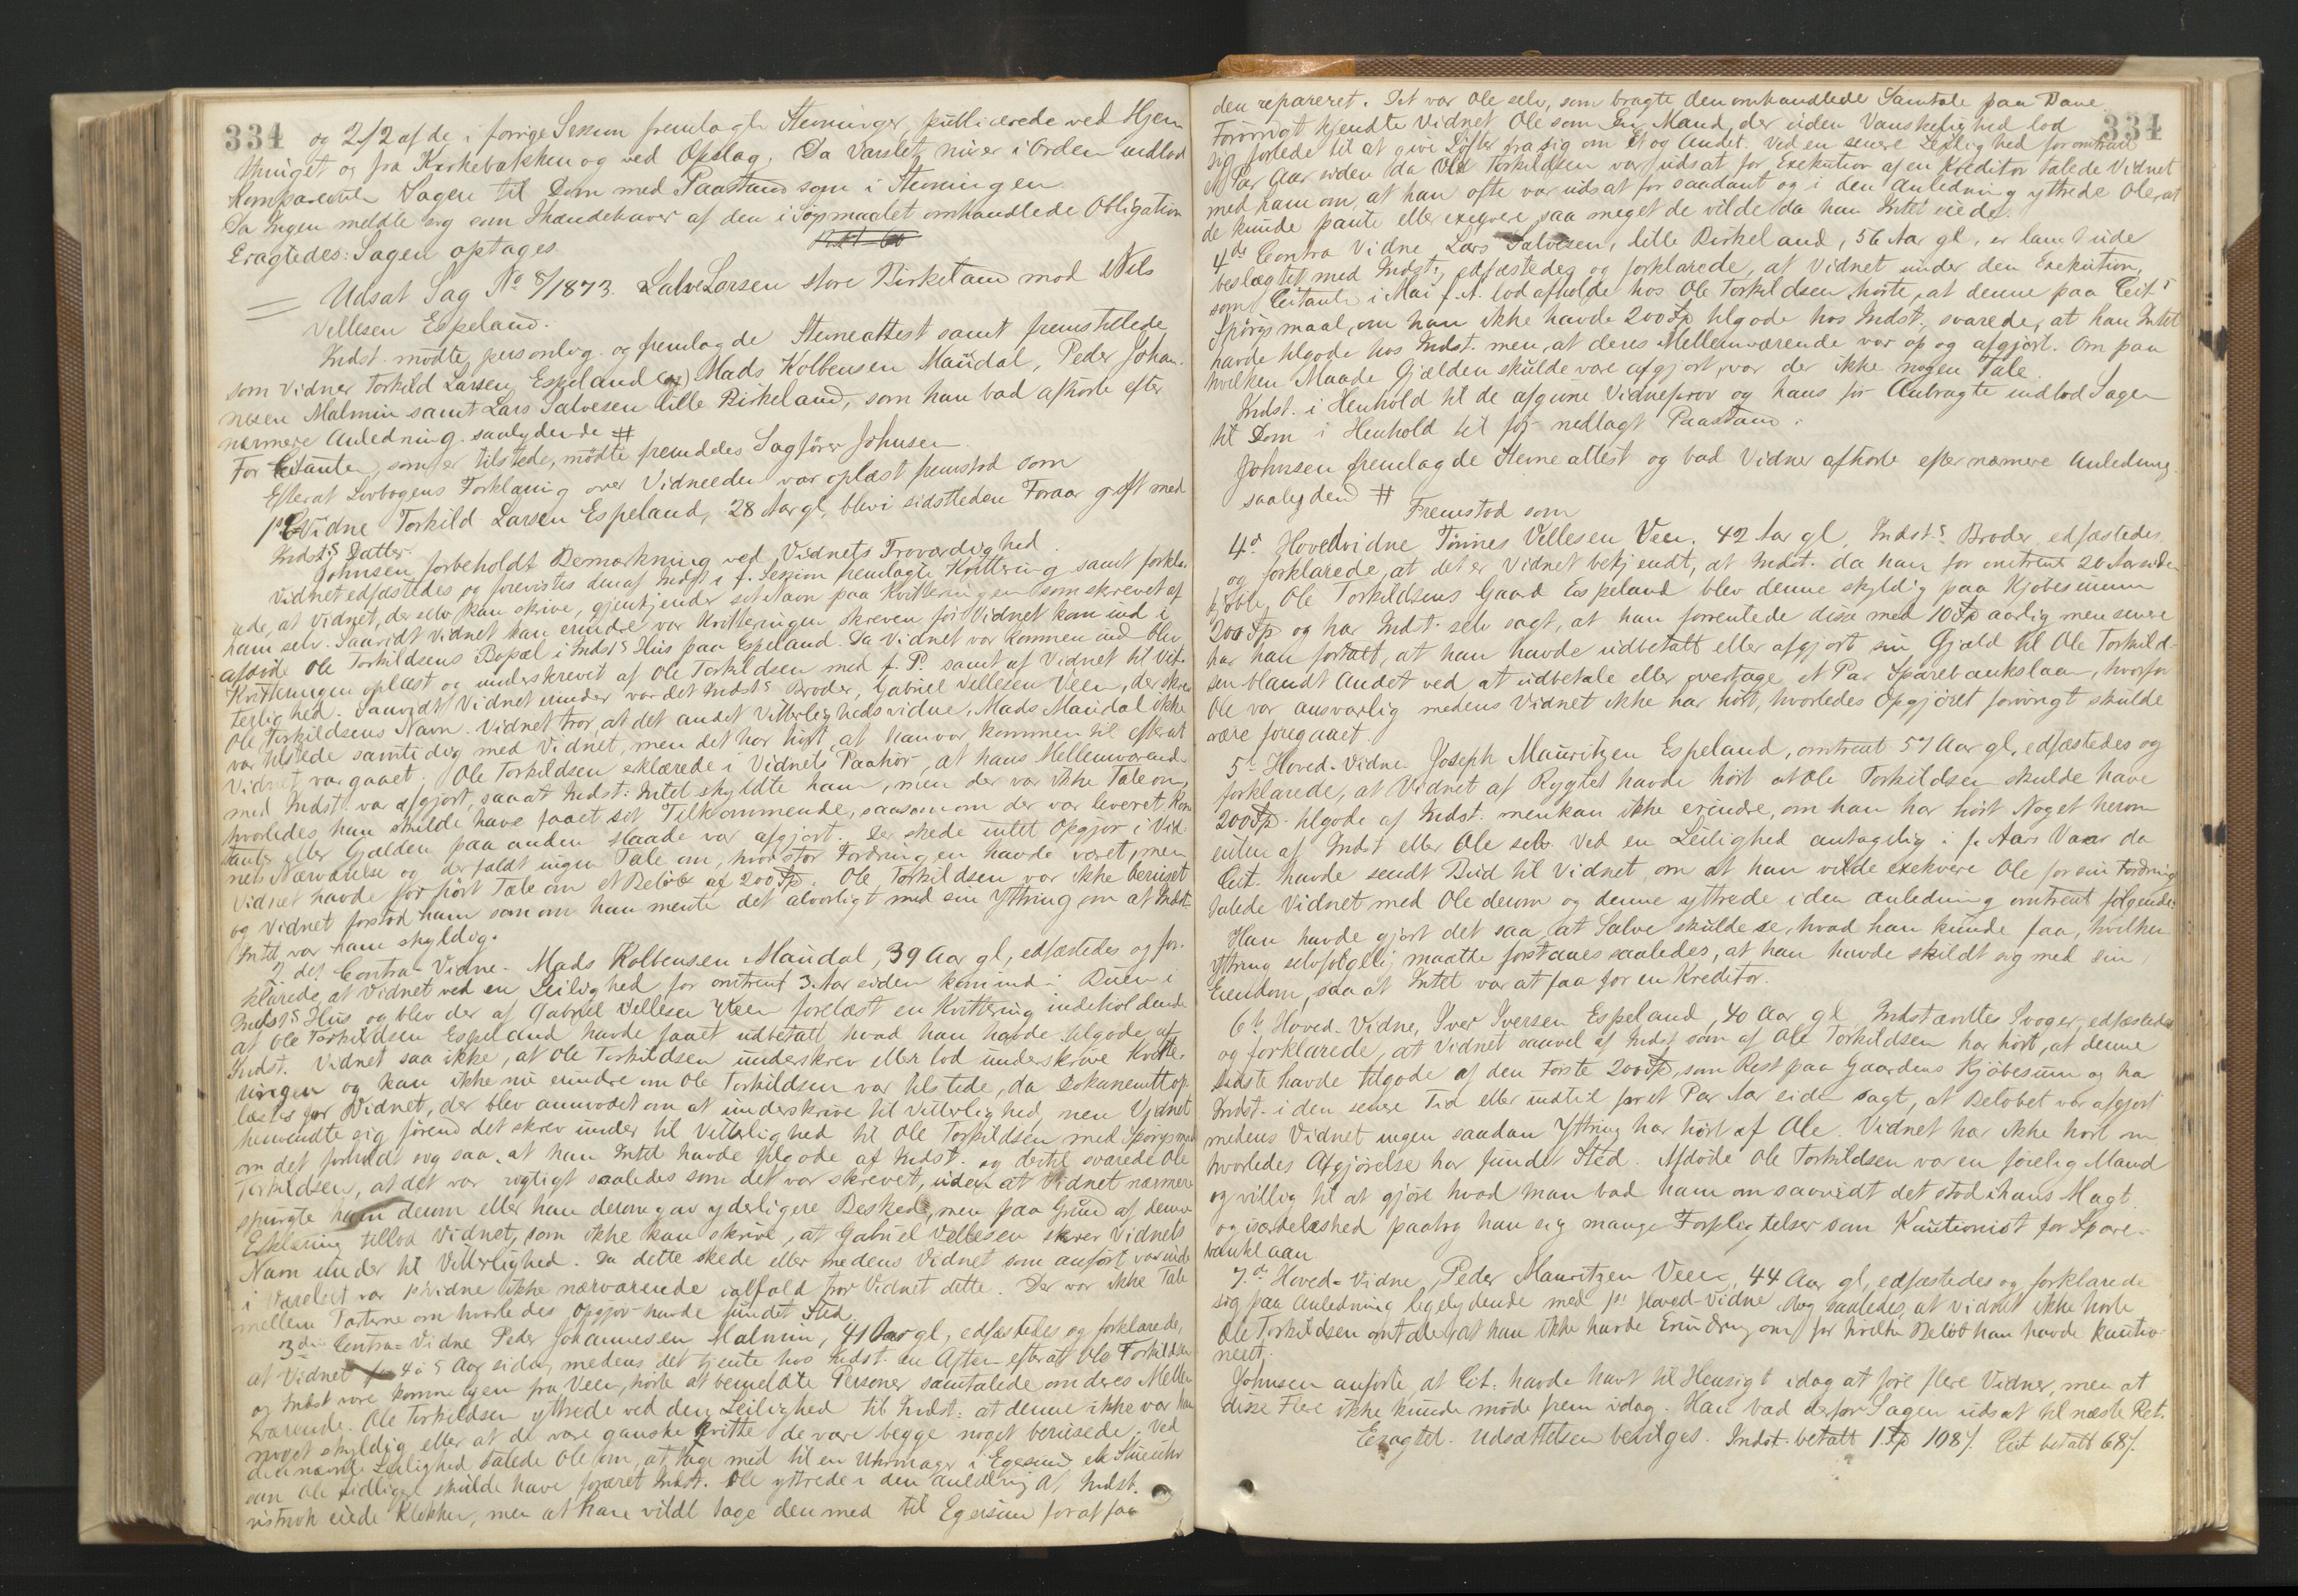 334
og 2/2 af de i forrige Session fremlagte Stevninger, publicerede ved Hjem
thinget og fra Kirkebakken og ved Opslag. Da Varslet nu er i Orden indlod
Komparenten Sagen til Dom med Paastand som i Stevningen
Da Ingen meldte sig som Ihændehaver af den i Søgsmaalet omhandlede Obligation
Eragtedes: Sagen optages.
Udsat Sag No 8/1873. Salve Larsen store Birkeland mod Nils
Vellesen Espeland.
Indst. mødte personlig og fremlagde Stevneattest samt fremstillede
som Vidner Torkild Larsen Espeland (og) Mads Kolbensen Maudal, Peder Johan-
nesen Malmin samt Lars Salvesen lille Birkeland, som han bad afhørte efter
nærmere Anledning saalydende #
For Citanten, som er tilstede, mødte fremdeles Sagfører Johnsen.
Efterat Lovbogens Forklaring over Vidneeden var oplæst fremstod som
1ste C Vidne Torkild Larsen Espeland, 28 Aar gl, blev i sidstleden Foraar gift med
Indsts Datter.
Johnsen forbeholdt Bemærkning ved Vidnets Troværdighed.
Vidnet edfæstedes og forevistes den af Indst i f. Session fremlagte Kvittering samt forkla-
rede, at Vidnet, der selv kan skrive, gjenkjender sit Navn paa Kvitteringen som skrevet af
ham selv. Saavidt Vidnet kan erindre var Kvitteringen skreven før Vidnet kom ind i
afdøde Ole Torkildsens Bopæl i Indsts Hus paa Espeland. Da Vidnet var kommen ind blev
Kvitteringen oplæst og underskrevet af Ole Torkildsen med f. P. samt af Vidnet til Vit-
terlighed. Saavidt Vidnet erindrer var det Indsts Broder, Gabriel Vellesen Veen, der skrev
Ole Torkildsens Navn. Vidnet tror, at det andet Vitterlighedsvidne, Mads Maudal ikke
var tilstede samtidig med Vidnet, men det har hørt, at han var kommen til efterat
Vidnet var gaaet. Ole Torkildsen erklærede i Vidnets Paahør, at hans Mellemværende
med Indst. var afgjort, saaat Indst. Intet skyldte ham, men der var ikke Tale om,
hvorledes han skulde have faaet sit Tilkommende, saasom om der var leveret Kon
tanter eller Gjælden paa anden Maade var afgjort. Der skede intet Opgjør i Vid-
nets Nærværelse og der faldt ingen Tale om, hvor stor Fordringen havde været, men
Vidnet havde før hørt Tale om et Beløb af 200 Sp. Ole Torkildsen var ikke beruset
og Vidnet forstod ham som om han mente det alvorligt med sin Yttring om at Indst.
Intet var ham skyldig.
2det Contra-Vidne. Mads Kolbensen Maudal, 39 Aar gl, edfæstedes og for-
klarede, at Vidnet ved en Leilighed for omtrent 3 Aar siden kom ind i Buen i
Indsts Hus og blev der af Gabriel Vellesen Veen forelæst en Kvittering indeholdende
at Ole Torkildsen Espeland havde faaet udbetalt hvad han havde tilgode af
Indst. Vidnet saa ikke, at Ole Torkildsen underskrev eller lod underskrive Kvitte-
ringen og kan ikke nu erindre om Ole Torkildsen var tilstede, da Dokumentet op-
læstes for Vidnet, der blev anmodet om at underskrive til Vitterlighed, men Vidnet
henvendte sig førend det skrev under til Vitterlighed til Ole Torkildsen med Spørgsmaal
om det forholdt sig saa, at han Intet havde tilgode af Indst. og dertil svarede Ole
Torkildsen, at det var rigtigt saaledes som det var skrevet, uden at Vidnet nærmere
spurgte ham derom eller han derom gav yderligere Besked, men paa Grund af denne
Erklæring tillod Vidnet, som ikke kan skrive, at Gabriel Vellesen skrev Vidnets
Navn under til Vitterlighed. Da dette skede eller medens Vidnet som anført var inde
i Værelset var 1ste Vidne ikke nærværende ialfald tror Vidnet dette. Der var ikke Tale
mellem Parterne om hvorledes Opgjør havde fundet Sted.
3die Contra-Vidne Peder Johannesen Malmin, 41 Aar gl, edfæstedes og forklarede,
at Vidnet for 4 à 5 Aar siden, medens det tjente hos Indst. en Aften efterat Ole Torkildsen
og Indst vare komne hjem fra Veen, hørte at bemeldte Personer samtalede om deres Mellem-
værende. Ole Torkildsen yttrede ved den Leilighed til Indst: at denne ikke var ham
noget skyldig eller at de vare ganske kvitte de vare begge noget berusede. Ved
den nævnte Leilighed talede Ole om, at tage med til en Uhrmager i Egersund et Stueuhr
som Ole tidligere skulde have foræret Indst. Ole yttrede i den Anledning at Indst.
vistnok eiede Klokken, men at han vilde tage den med til Egersund for at faa
334
den repareret. Det var Ole selv, som bragte den omhandlede Samtale paa Bane.
Forøvrigt kjendte Vidnet Ole som en Mand, der uden Vanskelighed lod
sig forlede til at give Løfter fra sig om Et og Andet. Ved en senere Leilighed for omtrent
et Par Aar siden da Ole Torkildsen var udsat for Exekution af en Kreditor talede Vidnet
med ham om, at han ofte var udsat for saadant og i den Anledning yttrede Ole, at
de kunde pante eller exeqvere saa meget de vilde da han Intet eiede.
4de Contra Vidne Lars Salvesen, lille Birkeland, 56 Aar gl, er langt ude
beslægtet med Indst:, edfæstedes og forklarede, at Vidnet under den Exekution,
som Citanten i Mai f. A. lod afholde hos Ole Torkildsen hørte, at denne paa Cits
Spørgsmaal, om han ikke havde 200 Sp tilgode hos Indst., svarede, at han Intet
havde tilgode hos Indst. men, at deres Mellemværende var op og afgjort. Om paa
hvilken Maade Gjælden skulde være afgjort, var der ikke nogen Tale.
Indst. i Henhold til de afgivne Vidneprov og hans før Anbragte indlod Sagen
til Dom i Henhold til før nedlagt Paastand.
Johnsen fremlagde Stevneattest og bad Vidner afhørte efter nærmere Anledning
saalydend #
Fremstod som
4de Hovedvidne Tønnes Vellesen Veen, 42 Aar gl, Indsts Broder, edfæstedes
og forklarede, at det er Vidnet bekjendt, at Indst. da han for omtrent 20 Aar siden
kjøbte Ole Torkildsens Gaard Espeland blev denne skyldig paa Kjøbesummen
200 Sp og har Indst. selv sagt, at han forrentede disse med 10 Sp aarlig men senere
har han fortalt, at han havde udbetalt eller afgjort sin Gjæld til Ole Torkild-
sen blandt Andet ved at udbetale eller overtage et Par Sparebankslaan, hvorfor
Ole var ansvarlig medens Vidnet ikke har hørt, hvorledes Opgjøret forøvrigt skulde
være foregaaet.
5te Hoved-Vidne Joseph Mauritzen Espeland, omtrent 57 Aar gl, edfæstedes og
forklarede, at Vidnet af Rygtet havde hørt at Ole Torkildsen skulde have
200 Sp. tilgode af Indst. men kan ikke erindre, om han har hørt Noget herom
enten af Indst eller Ole selv. Ved en Leilighed antagelig i f. Aars Vaar da
Cit. havde sendt Bud til Vidnet, om at han vilde exekvere Ole for sin Fordring
talede Vidnet med Ole derom og denne yttrede i den Anledning omtrent følgende:
Han havde gjort det saa, at Salve skulde se, hvad han kunde faa, hvilken
Yttring selvfølgelig maatte forstaaes saaledes, at han havde skildt sig med sin
Eiendom, saa at Intet var at faa for en Kreditor.
6te Hoved-Vidne, Iver Iversen Espeland, 40 Aar gl, Indstævntes Svoger, edfæstedes
og forklarede, at Vidnet saavel af Indst som af Ole Torkildsen har hørt, at denne
Sidste havde tilgode af den Første 200 Sp, som Rest paa Gaardens Kjøbesum og har
Indst. i den senere Tid eller indtil for et Par Aar siden sagt, at Beløbet var afgjort
medens Vidnet ingen saadan Yttring har hørt af Ole. Vidnet har ikke hørt om
hvorledes Afgjørelse har fundet Sted. Afdøde Ole Torkildsen var en føielig Mand
og villig til at gjøre hvad man bad ham om saavidt det stod i hans Magt
og isærdeleshed paatog han sig mange Forpligtelser som Kautionist for Spare-
banklaan.
7de Hoved-Vidne, Peder Mauritzen Veen, 44 Aar gl, edfæstedes og forklarede
sig paa Anledning ligelydende med 1ste Hoved-Vidne dog saaledes, at Vidnet ikke hørte
Ole Torkildsen omtale, at han ikke havde Erindring om for hvilke Beløb han havde kautio-
neret.
Johnsen anførte, at Cit. havde havt til Hensigt idag at føre flere Vidner, men at
disse Flere ikke kunde møde frem idag. Han bad derfor Sagen udsat til næste Ret.
Eragtet. Udsættelsen bevilges. Indst. betalt 1 Sp 108 ß. Cit betalt 68 ß.